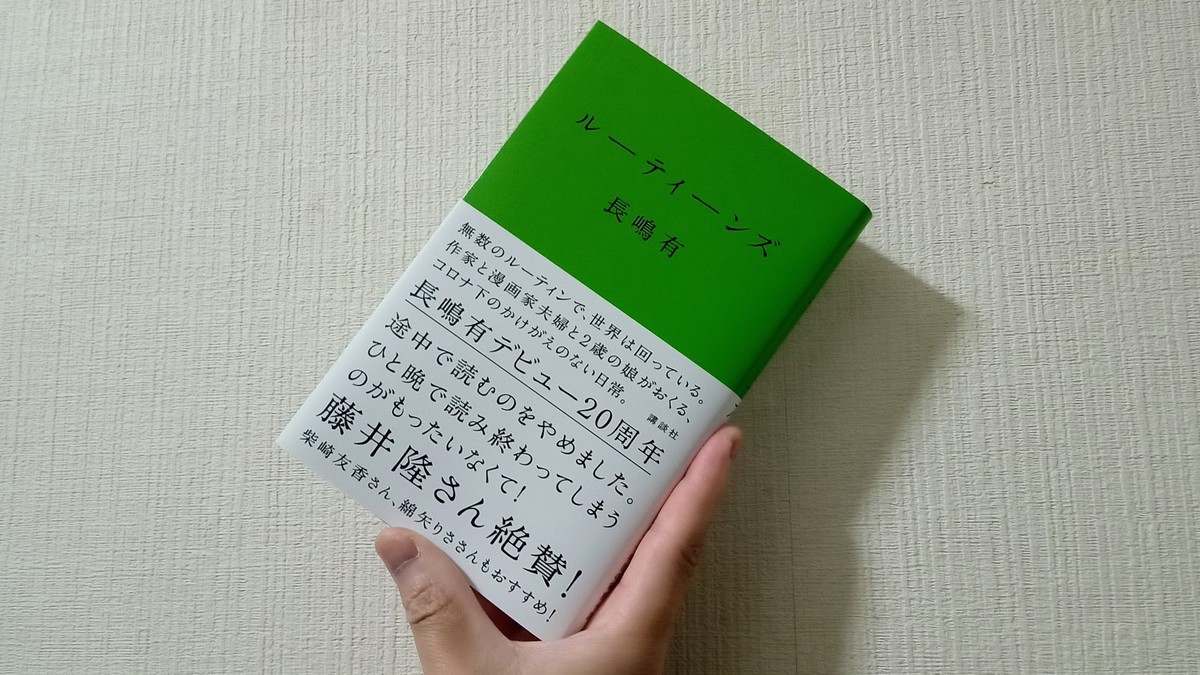 ルーティーンズ
長嶋有
無数のルーティンで、世界は回っている。
作家と漫画家夫婦と2歳の娘がおくる、
コロナ下のかけがえのない日常。
講談社
長嶋有デビュー20周年
途中で読むのをやめました。
ひと晩で読み終わってしまう
のがもったいなくて!
藤井隆さん絶賛!
柴崎友香さん、綿矢りささんもおすすめ!